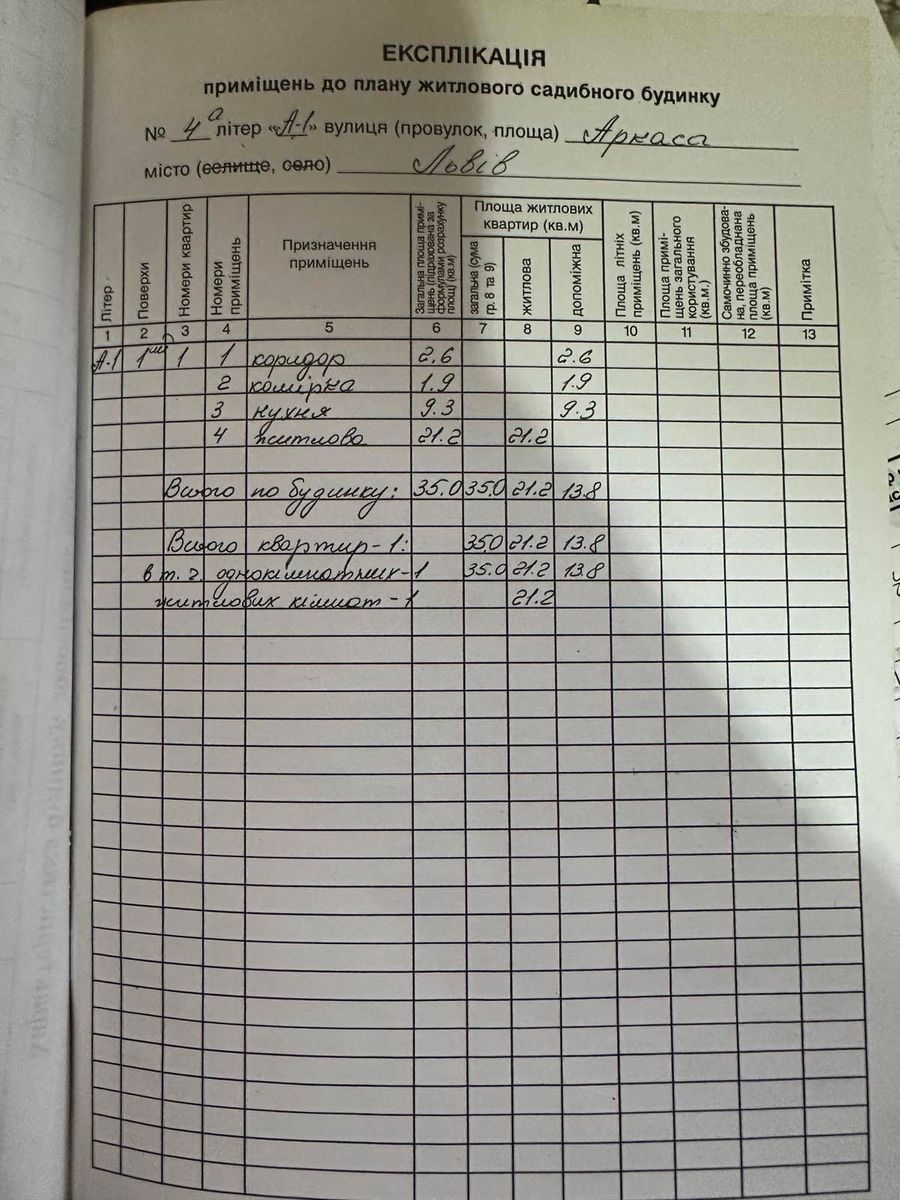 ЕКСПЛІКАЦІЯ
приміщень до плану житлового садибного будинку
№ 4а літер «А-1» вулиця (провулок, площа) Аркаса
місто (селище, село) Львів
Літер
Поверхи
Номери квартир
Номери приміщень
Призначення приміщень
Загальна площа приміщень (підрахована за формулами розрахунку площ) (кв.м)
Площа житлових квартир (кв.м)
загальна (сума гр. 8 та 9)
житлова
допоміжна
Площа літніх приміщень (кв.м)
Площа приміщень загального користування (кв.м.)
Самочинно збудована, переобладнана площа приміщень (кв.м)
Примітка
1 2 3 4 5 6 7 8 9 10 11 12 13
А-1 1ий 1 1 коридор 2.6 2.6
2 комірка 1.9 1.9
3 кухня 9.3 9.3
4 житлова 21.2 21.2
Всього по будинку: 35.0 35.0 21.2 13.8
Всього квартир-1: 35.0 21.2 13.8
в т. ч. однокімнатних-1 35.0 21.2 13.8
житлових кімнат-1 21.2